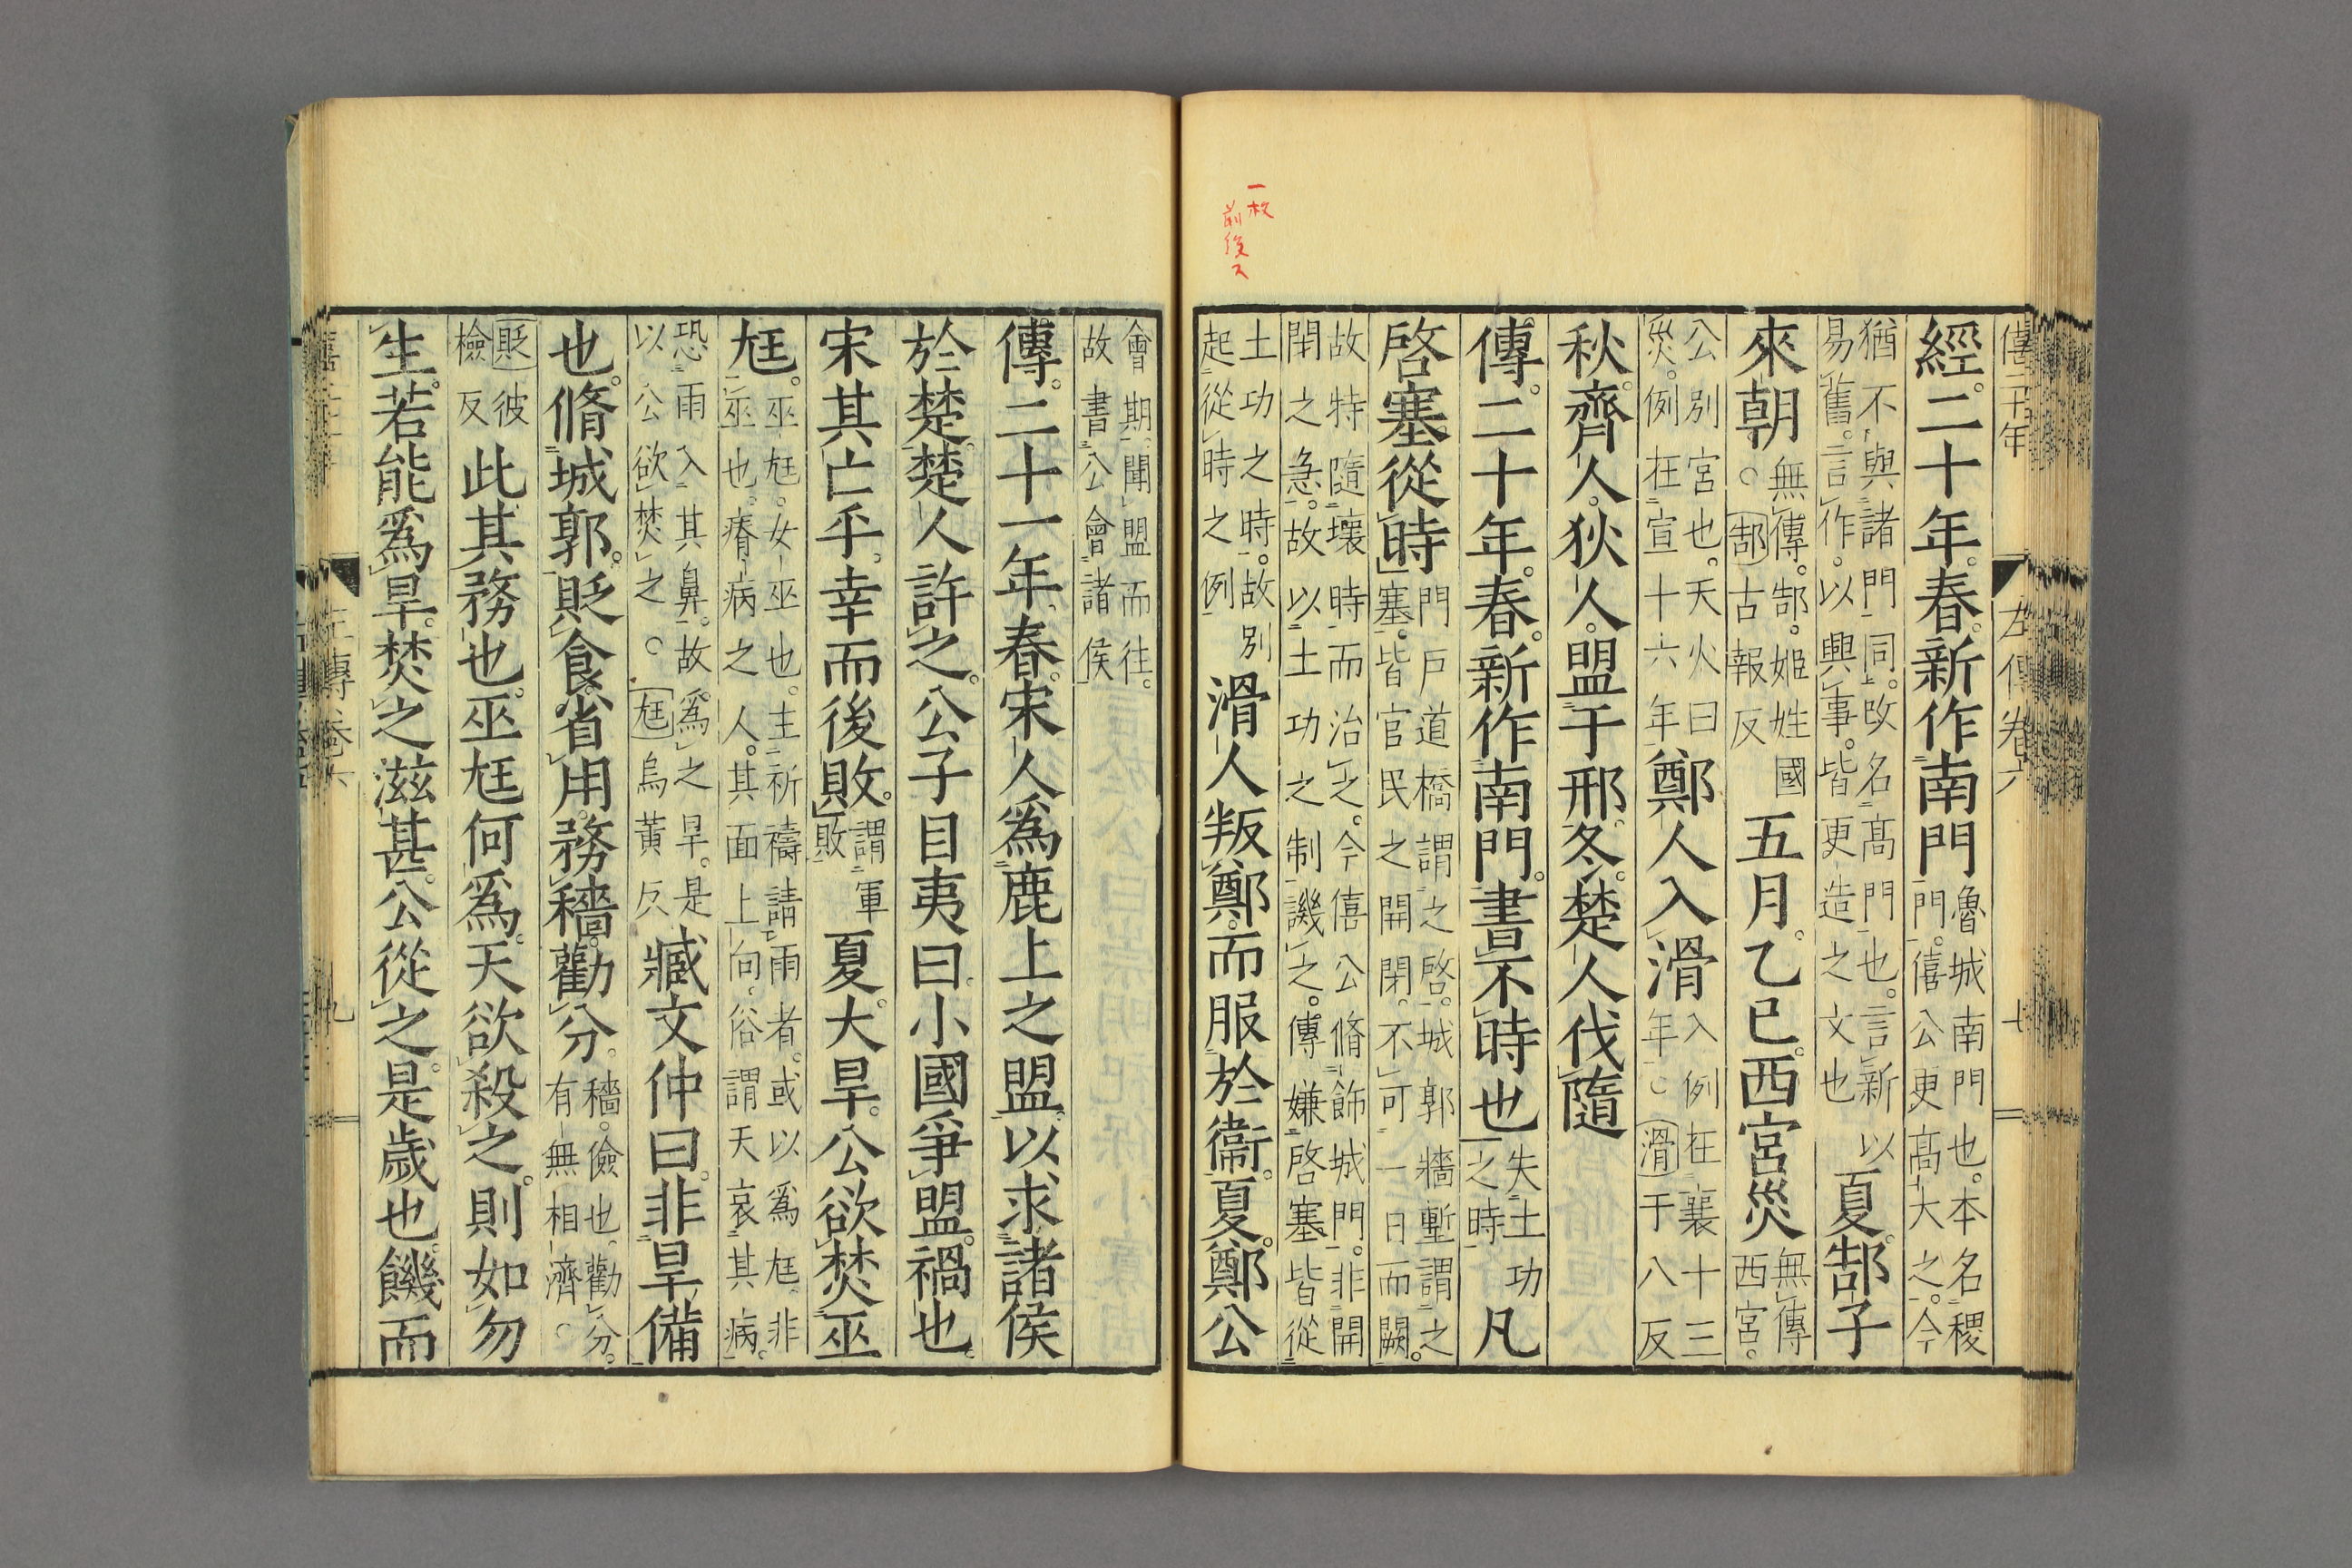 一枚
前後ス
僖二十年
左傳卷六
七
經。二十年。春。新作南門魯城南門也。本名稷門。僖公更高大之。今
猶不與諸門同。改名高門也。言新以易舊。言作。以興事。皆更造之文也夏。郜子
來朝無傳。郜。姬姓國。○郜古報反五月。乙巳。西宮災無傳西宮。
公別宮也。天火曰災。例在宣十六年鄭人入滑入例在襄十三年。○滑于八反
秋。齊人。狄人。盟于邢。冬。楚人伐隨
傳。二十年。春。新作南門。書不時也失土功之時凡
啓塞從時門戶道橋謂之啓。城郭牆塹謂之塞。皆官民之開閉。不可一日而闕。
故特隨壞時而治之。今僖公脩飾城門。非開閉之急。故以土功之制譏之。傳嫌啓塞皆從
土功之時。故別起從時之例滑人叛鄭。而服於衞。夏。鄭公
會期。聞盟而往。故書公會諸侯
傳。二十一年。春。宋人爲鹿上之盟。以求諸侯
於楚。楚人許之。公子目夷曰。小國爭盟。禍也。
宋其亡乎。幸而後敗。謂軍敗夏。大旱。公欲焚巫
尪。巫尪。女巫也。主祈禱請雨者。或以爲尪。非巫也。瘠病之人。其面上向。俗謂天哀其病。
恐雨入其鼻。故爲之旱。是以公欲焚之。○尪烏黃反臧文仲曰。非旱備
也。脩城郭。貶食。省用。務穡。勸分。穡。儉也。勸分。有無相濟。○
貶彼檢反此其務也。巫尪何爲。天欲殺之。則如勿
生。若能爲旱。焚之滋甚。公從之。是歲也。饑而
左傳卷六
九